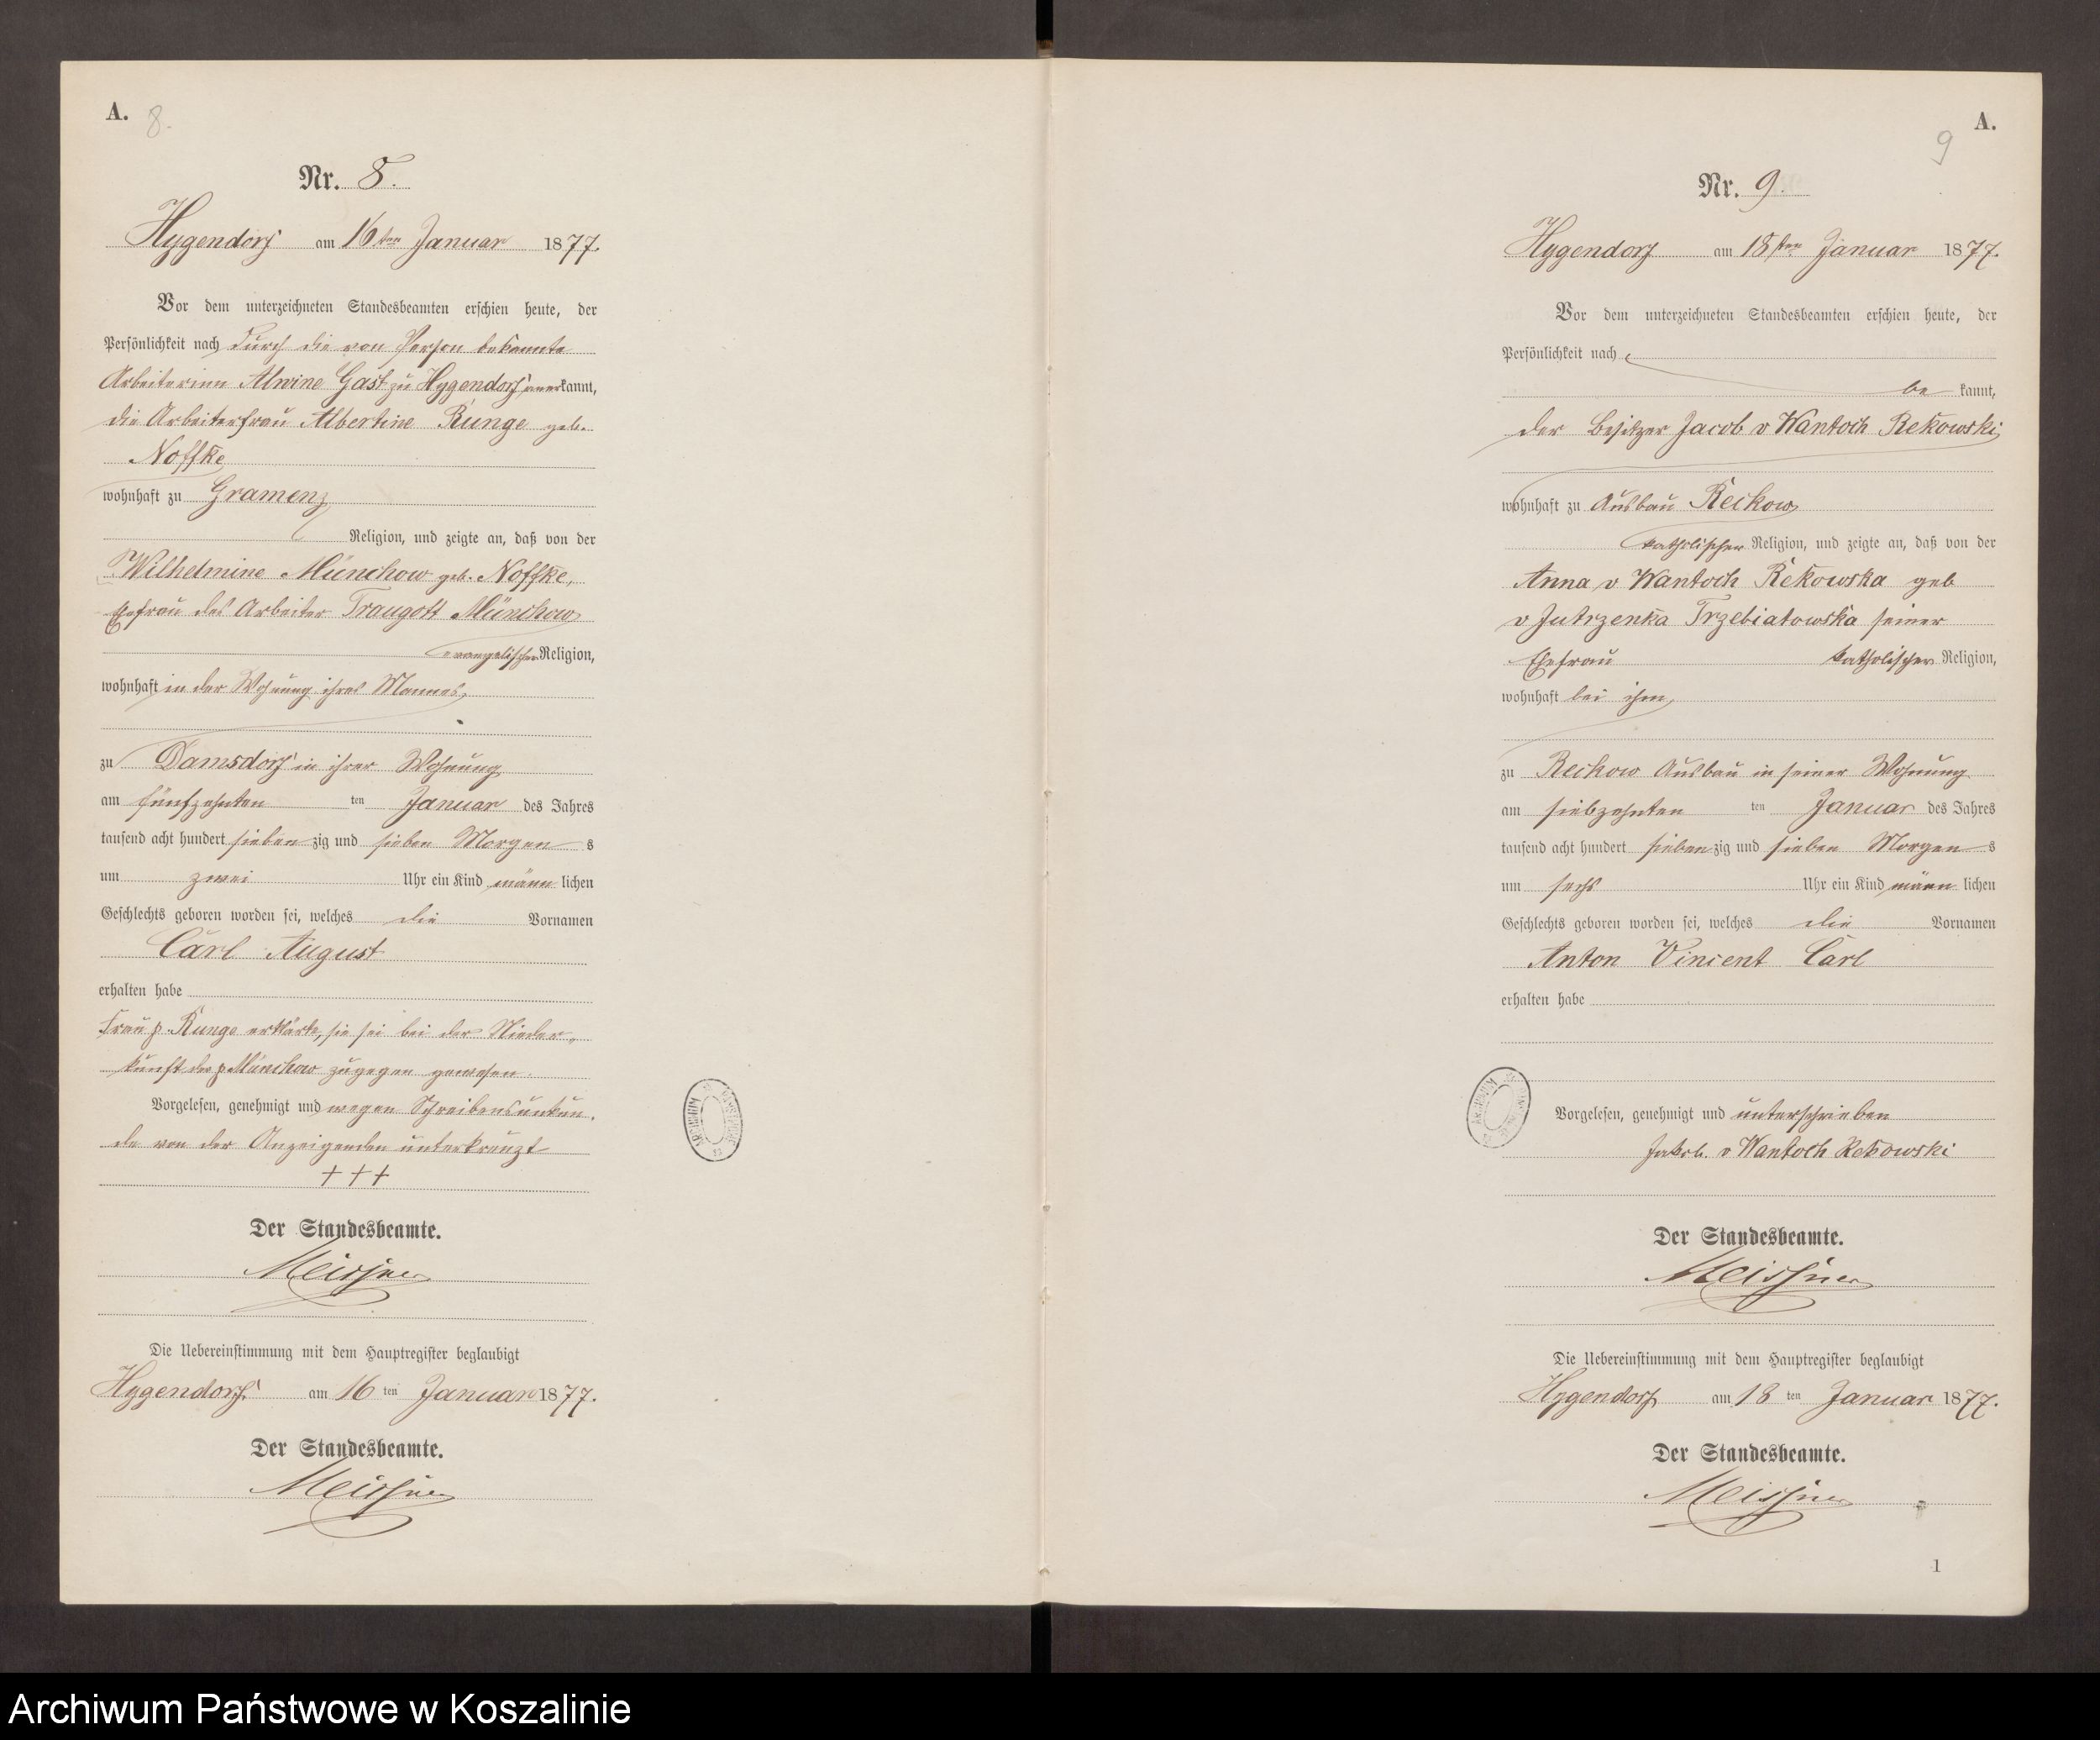 A.
8.
Nr. 8.
Hygendorf am 16ten Januar 1877.
Vor dem unterzeichneten Standesbeamten erschien heute, der
Persönlichkeit nach durch die von Person bekannte
Arbeiterinn Alwine Gast zu Hygendorf anerkannt,
die Arbeiterfrau Albertine Runge geb.
Noffke
wohnhaft zu Gramenz
Religion, und zeigte an, daß von der
Wilhelmine Münchow geb. Noffke,
Ehefrau des Arbeiter Traugott Münchow
evangelischer Religion,
wohnhaft in der Wohnung ihres Mannes,
zu Damsdorf in ihrer Wohnung
am fünfzehnten ten Januar des Jahres
tausend acht hundert siebenzig und sieben Morgens
um zwei Uhr ein Kind männlichen
Geschlechts geboren worden sei, welches die Vornamen
Carl August
erhalten habe
Frau p. Runge erklärte, sie sei bei der Nieder-
kunft der p Münchow zugegen gewesen.
Vorgelesen, genehmigt und wegen Schreibensunkun-
de von der Anzeigenden unterkreuzt
+++
Der Standesbeamte.
Meissner
Die Uebereinstimmung mit dem Hauptregister beglaubigt
Hygendorf am 16 ten Januar 1877.
Der Standesbeamte.
Meissner
A.
9
Nr. 9.
Hygendorf am 18ten Januar 1877.
Vor dem unterzeichneten Standesbeamten erschien heute, der
Persönlichkeit nach
be kannt,
der Besitzer Jacob v Wantoch Rekowski
wohnhaft zu Ausbau Reckow
katholischer Religion, und zeigte an, daß von der
Anna v Wantoch Rekowska geb
v Jutrzenka Trzebiatowska seiner
Ehefrau katholischer Religion,
wohnhaft bei ihm,
zu Reckow Ausbau in seiner Wohnung
am siebzehnten ten Januar des Jahres
tausend acht hundert siebenzig und sieben Morgens
um sechs Uhr ein Kind männlichen
Geschlechts geboren worden sei, welches die Vornamen
Anton Vincent Carl
erhalten habe
Vorgelesen, genehmigt und unterschrieben
Jakob v Wantoch Rekowski
Der Standesbeamte.
Meissner
Die Uebereinstimmung mit dem Hauptregister beglaubigt
Hygendorf am 18 ten Januar 1877.
Der Standesbeamte.
Meissner
1
Archiwum Państwowe w Koszalinie